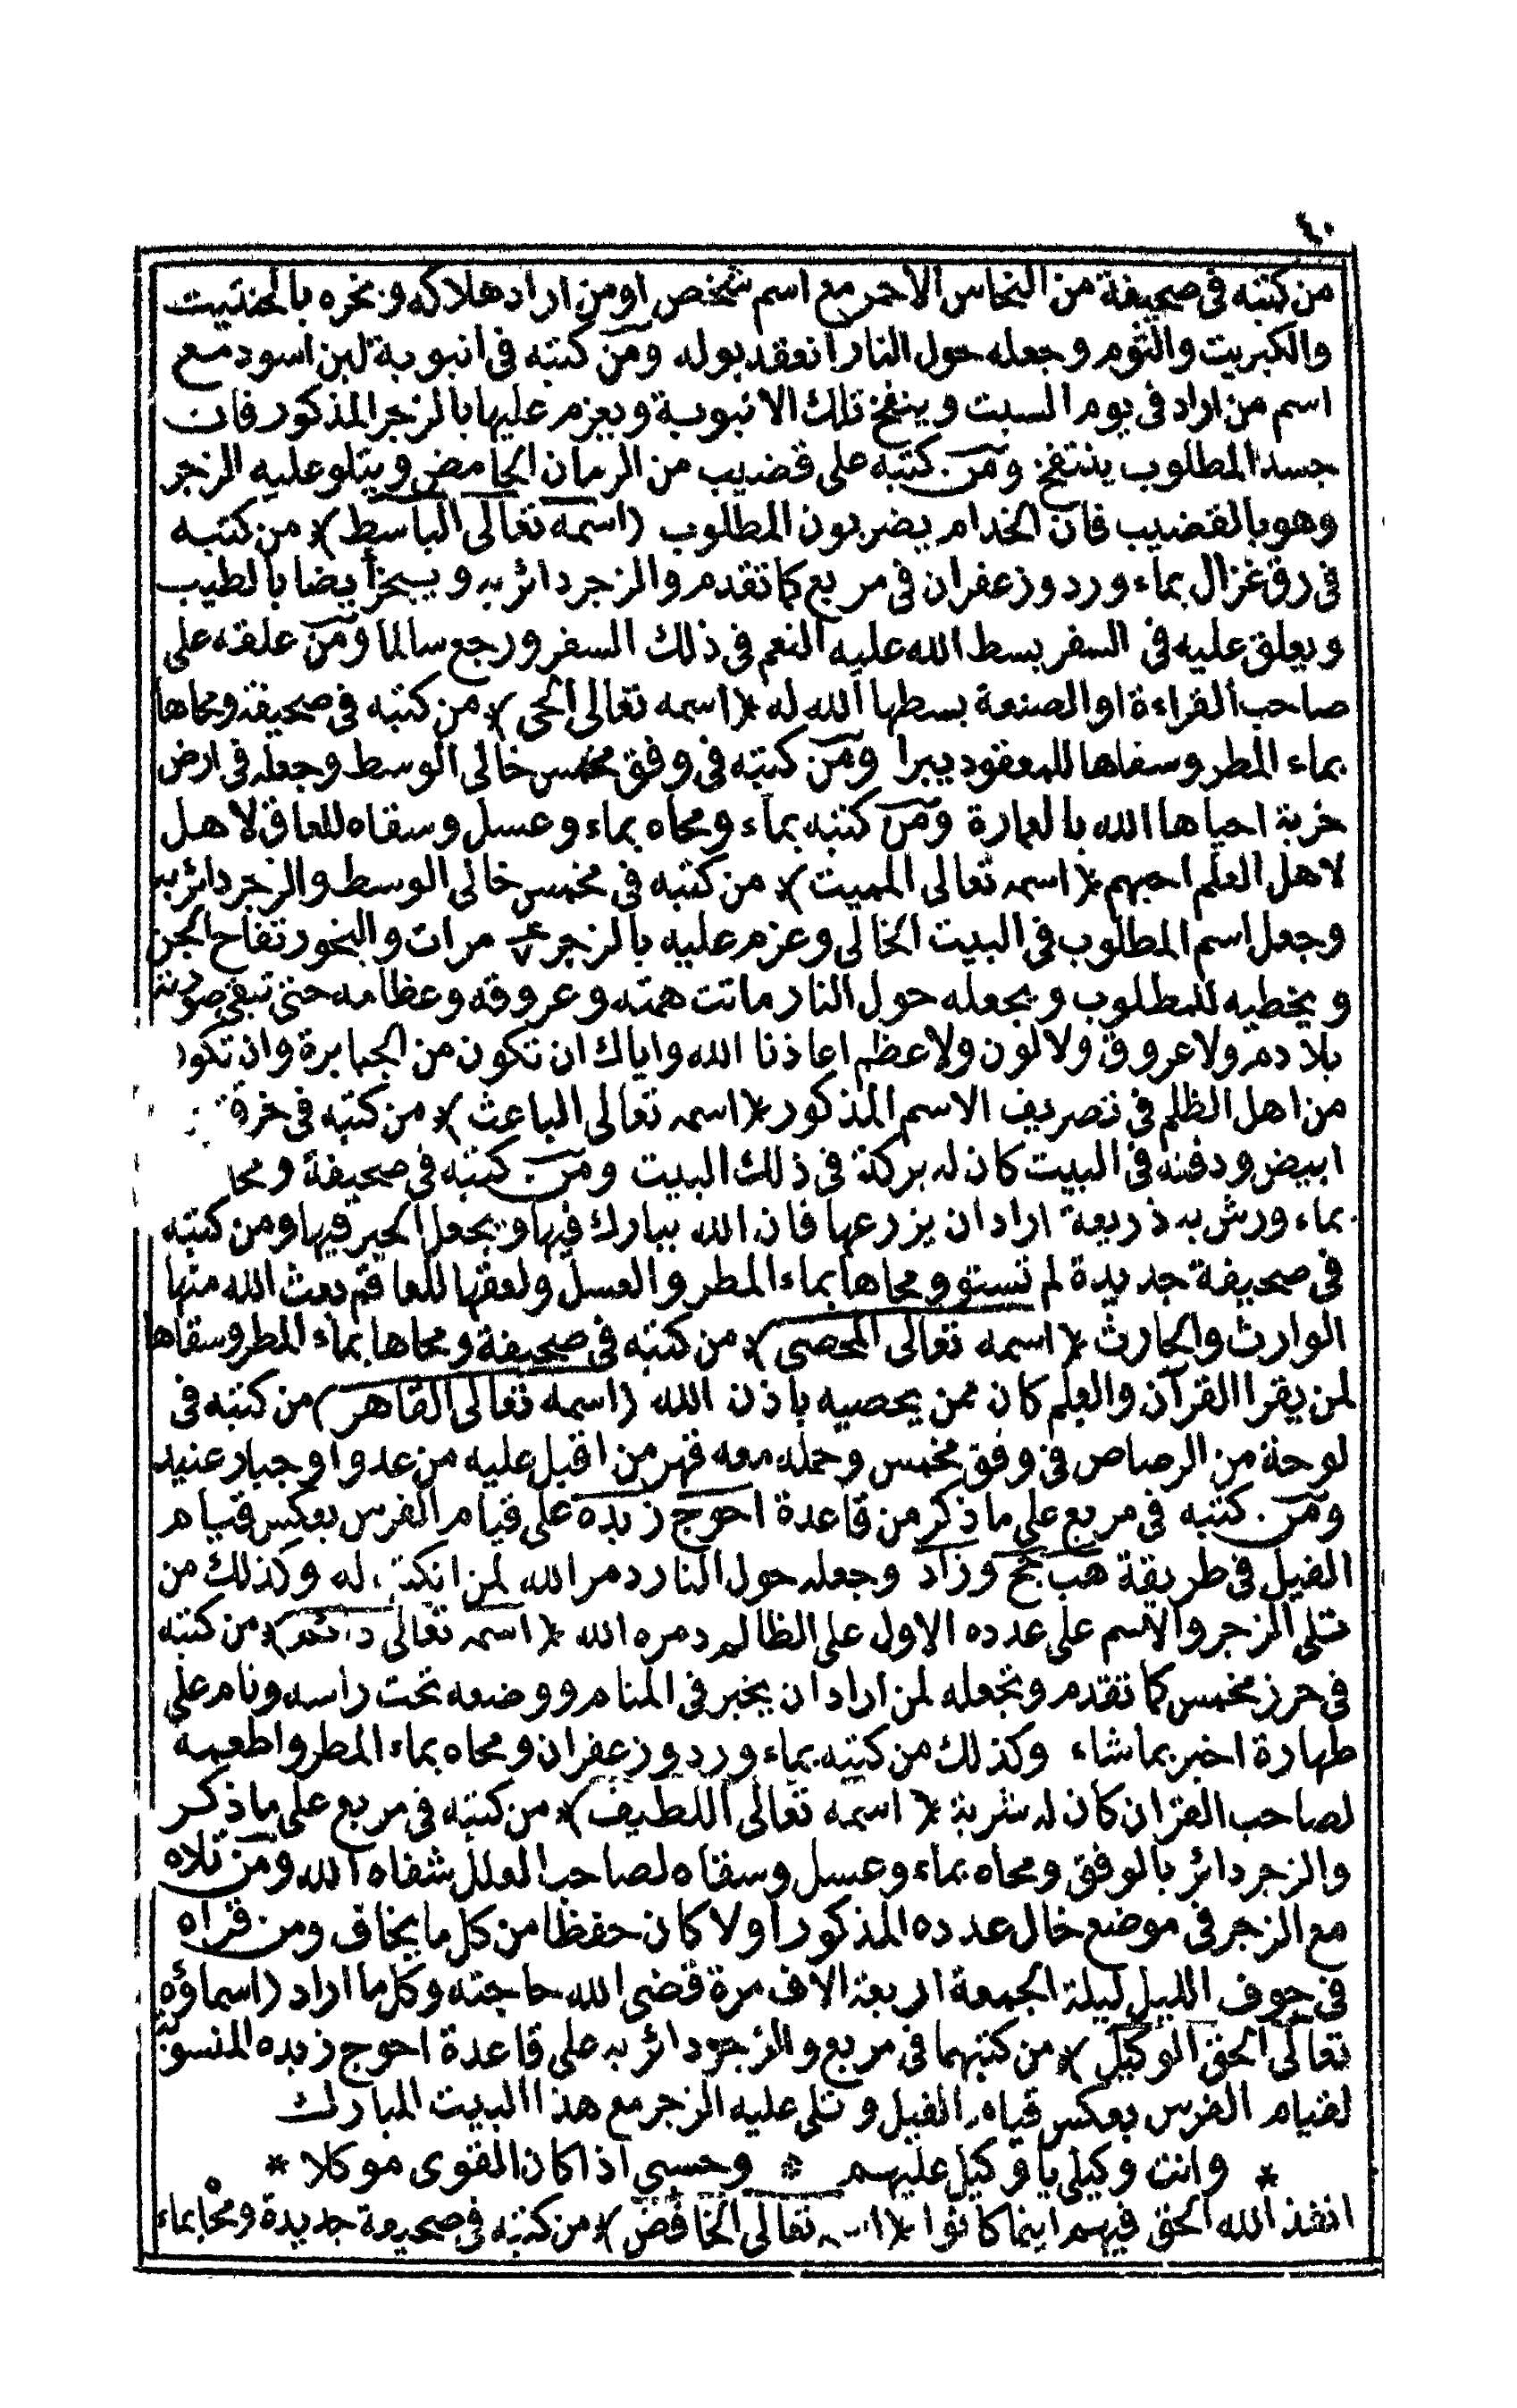 ٤٠
من كتبه فى صحيفة من النحاس الأحمر مع اسم شخص او من اراد هلاكه و بخره بالحنتيت
والكبريت والثوم وجعله حول النار انعقد بوله ومن كتبه فى انبوبة لبن اسود مع
اسم من اراد فى يوم السبت وينفخ تلك الانبوبة ويعزم عليها بالزجر المذكور فان
جسد المطلوب ينتفخ ومن كتبه على قضيب من الرمان الحامض ويتلو عليه الزجر
وهو بالقضيب فان الخدام يضربون المطلوب (اسمه تعالى الباسط) من كتبه
فى رق غزال بماء ورد وزعفران فى مربع كما تقدم والزجر دائر به ويبخر أيضا بالطيب
ويعلق عليه فى السفر بسط الله عليه النعم فى ذلك السفر ورجع سالما ومن علقه على
صاحب القراءة او الصنعة بسطها الله له (اسمه تعالى الحى) من كتبه فى صحيفة ومحاها
بماء المطر وسقاها للمعقود يبرا ومن كتبه فى وفق مخمس خالى الوسط وجعله فى ارض
خربة احياها الله بالعمارة ومن كتبه بماء ومحاه بماء وعسل وسقاه للعاق لاهل
لاهل العلم احبهم (اسمه تعالى المميت) من كتبه فى مخمس خالى الوسط والزجر دائر به
وجعل اسم المطلوب فى البيت الخالى وعزم عليه بالزجر مرات والبخور تفاح الجن
و يخطيه للمطلوب ويجعله حول النار ماتت همته وعروقه وعظامه حتى تبقى صورته
بلا دم ولا عروق ولا لون ولا عظم اعاذنا الله واياك ان تكون من الجبابرة وان تكو
من اهل الظلم فى تصريف الاسم المذكور (اسمه تعالى الباعث) من كتبه فى خرقة
ابيض ودفنه فى البيت كان له بركة فى ذلك البيت ومن كتبه فى صحيفة ومحا
بماء ورش به ذريعة اراد ان يزرعها فان الله يبارك فيها ويجعل الخير فيها ومن كتبه
فى صحيفة جديدة لم تستو ومحاها بماء المطر والعسل ولعقها للعاقم بعث الله منها
الوارث والحارث (اسمه تعالى المحصى) من كتبه فى صحيفة ومحاها بماء المطر وسقاها
لمن يقرا القرآن والعلم كان ممن يحصيه باذن الله (اسمه تعالى القاهر) من كتبه فى
لوحة من الرصاص فى وفق مخمس وحمله معه قهر من اقبل عليه من عدو او جبار عنيد
ومن كتبه فى مربع على ما ذكر من قاعدة احوج زبده على قيام الفرس بعكس قيام
الفيل فى طريقة هب بخ وزاد وجعله حول النار دمر الله لمن انكتب له وكذلك من
تلى الزجر والاسم على عدده الاول على الظالم دمره الله (اسمه تعالى) من كتبه
فى حرز مخمس كما تقدم وتجعله لمن اراد ان يخبر فى المنام ووضعه تحت راسه ونام على
طهارة اخبر بما شاء وكذلك من كتبه بماء ورد وزعفران ومحاه بماء المطر واطعمه
لصاحب القران كان له شربة (اسمه تعالى اللطيف) من كتبه فى مربع على ما ذكر
والزجر دائر بالوفق ومحاه بماء وعسل وسقاه لصاحب العلل شفاه الله ومن تلاه
مع الزجر فى موضع خال عدده المذكور أولا كان حفظا من كل ما يخاف ومن قراه
فى جوف الليل ليلة الجمعة اربعة الاف مرة قضى الله حاجته وكل ما اراد (اسماؤه
تعالى الحق الوكيل) من كتبهما فى مربع والزجر دائر به على قاعدة احوج زبده المنسوبة
لقيام الفرس بعكس قيام الفيل و تلى عليه الزجر مع هذا البيت المبارك
* وانت وكيلى يا وكيل عليهم * وحسبى اذا كان القوى موكلا *
انفذ الله الحق فيهم اينما كانوا (اسمه تعالى الخافض) من كتبه فى صحيفة جديدة ومحاه بماء